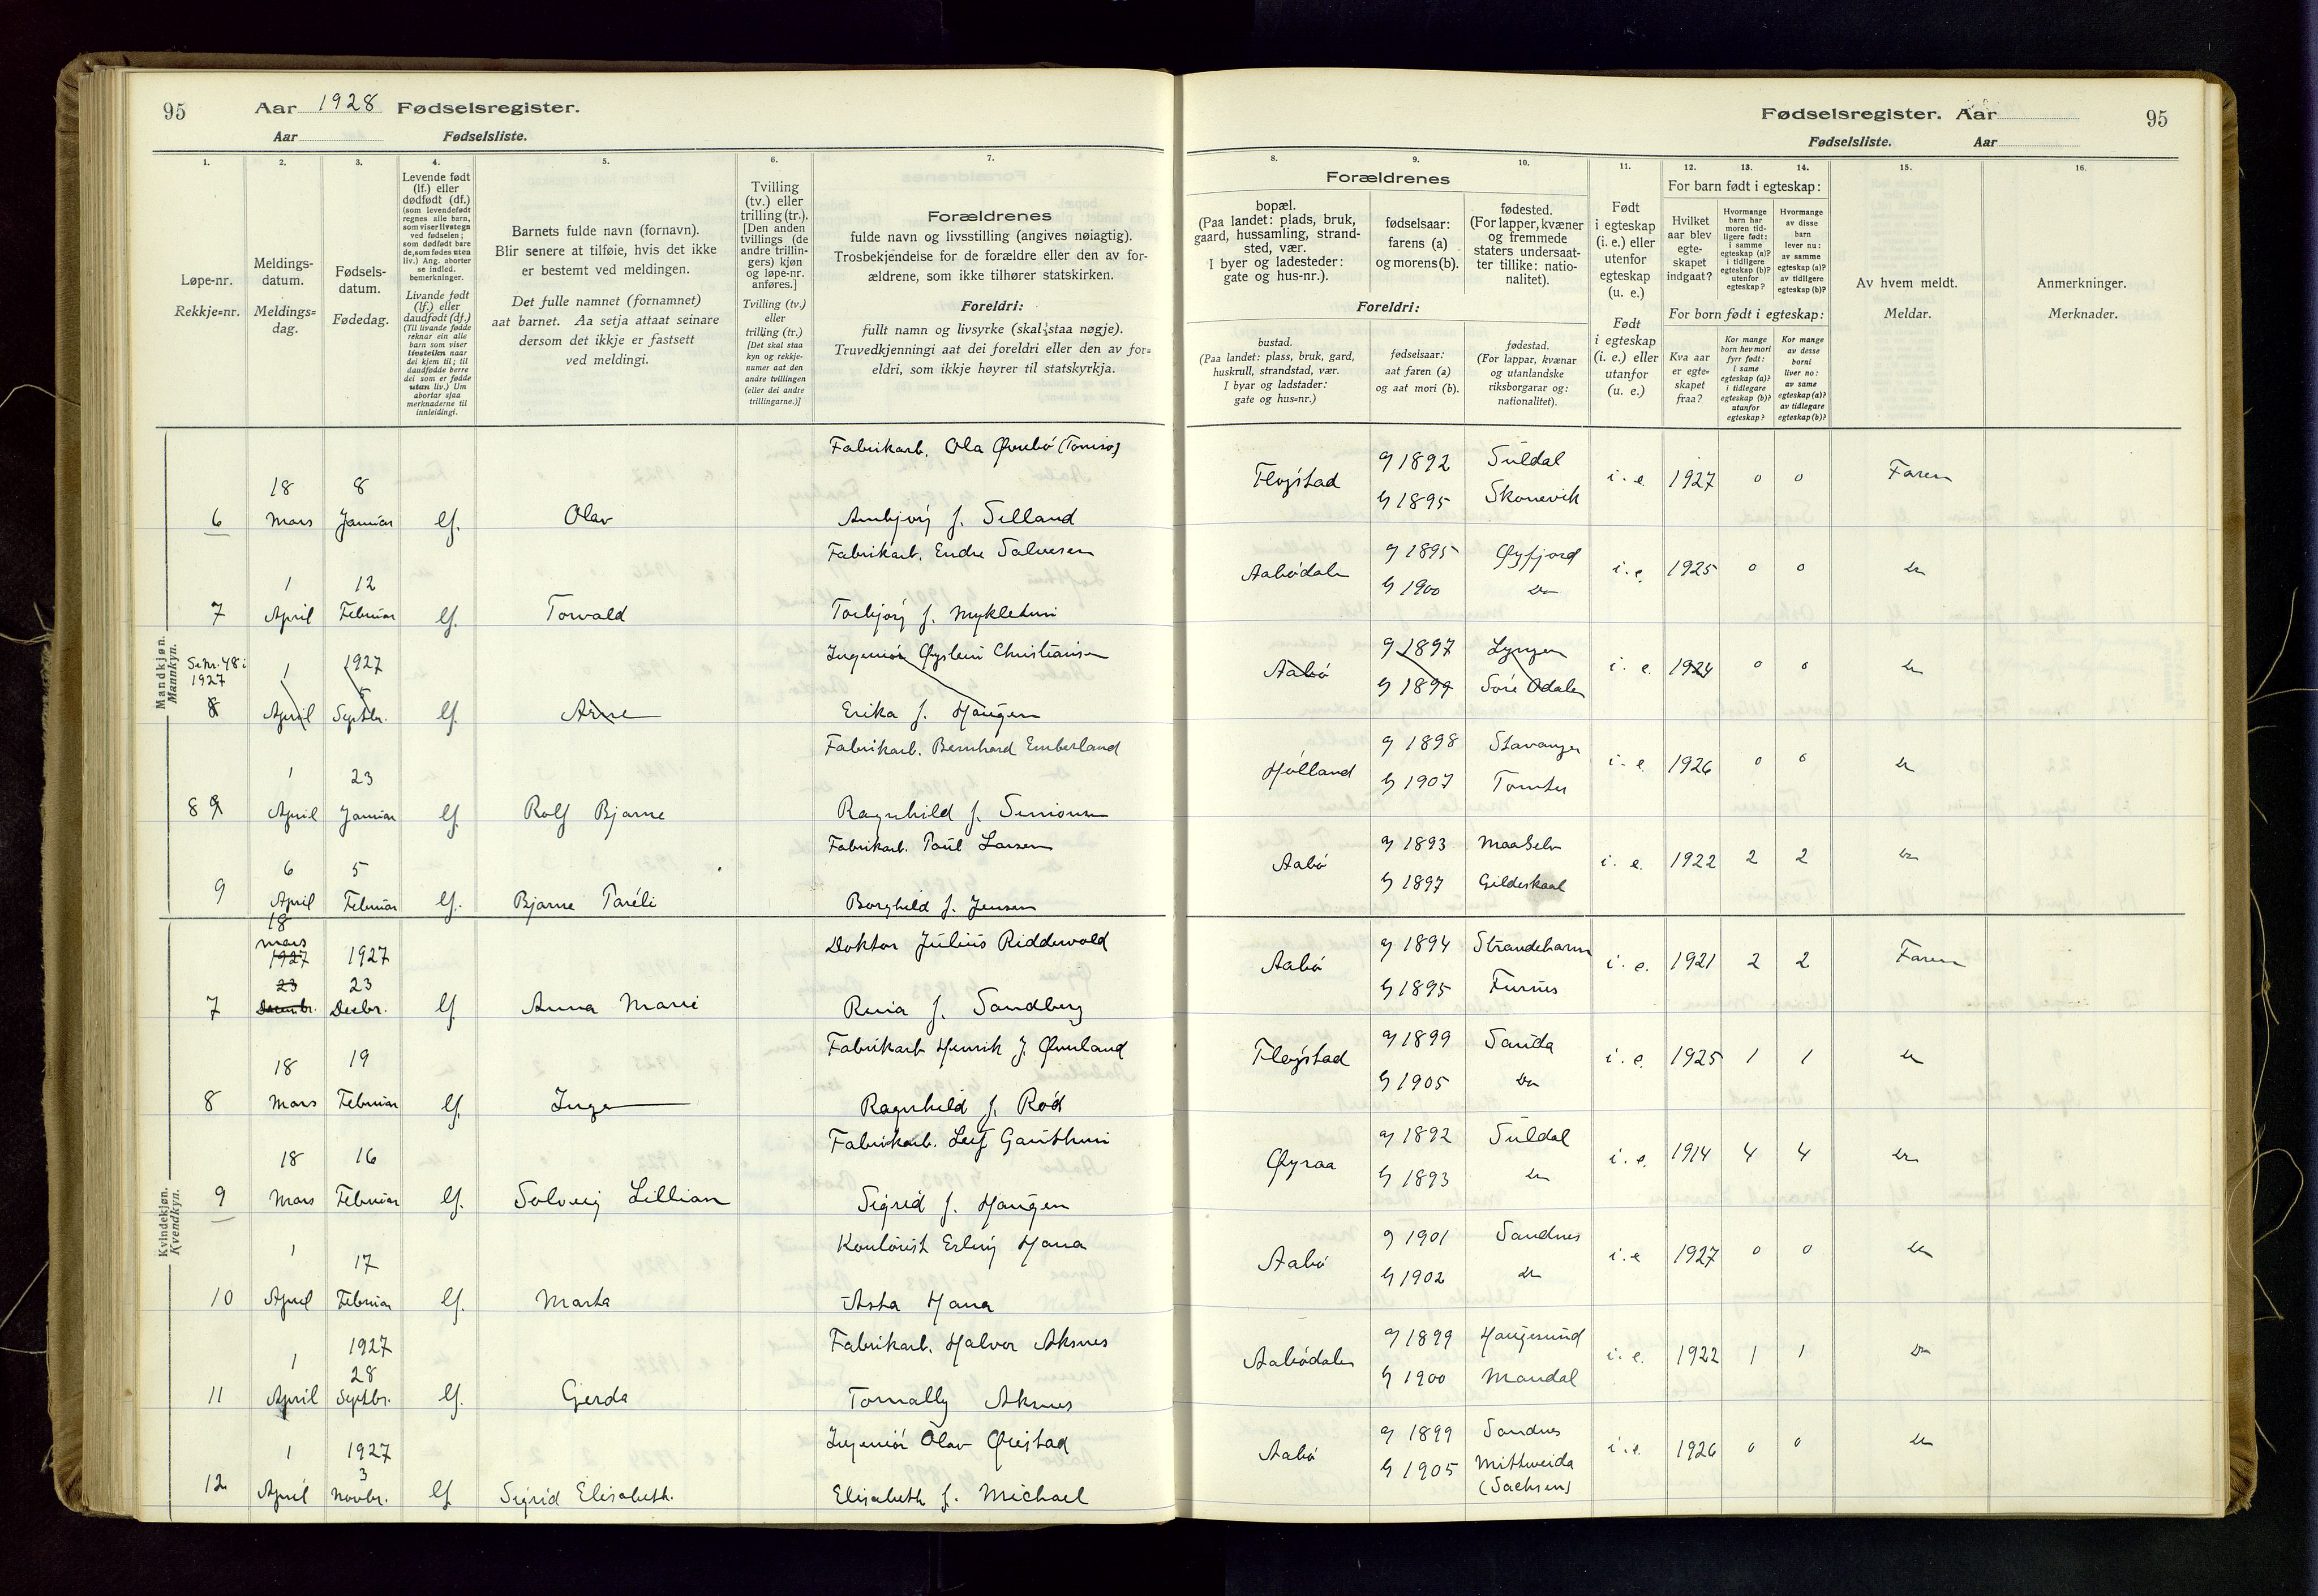 95 Aar 1928 Fødselsregister.
Aar Fødselsliste.
1. 2. 3. 4. 5. 6. 7.
Løpe-nr.
Rekkje=nr.
Meldings-
datum.
Meldings=
dag.
Fødsels-
datum.
Fødedag.
Levende født
(lf.) eller
dødfødt (df.)
(som levendefødt
regnes alle barn,
som viser livstegn
ved fødselen;
som dødfødt bare
de, som fødes uten
liv.) Ang. aborter
se indled.
bemerkninger.
Livande født
(lf.) eller
daudfødt (df.)
(Til livande fødde
reknar ein alle
barn som viser
livsteikn naar
dei kjem til; til
daudfødde berre
dei som er fødde
utan liv.) Um
abortar sjaa
merknaderne til
innleidingi.
Barnets fulde navn (fornavn).
Blir senere at tilføie, hvis det ikke
er bestemt ved meldingen.
Det fulle namnet (fornamnet)
aat barnet. Aa setja attaat seinare
dersom det ikkje er fastsett
ved meldingi.
Tvilling
(tv.) eller
trilling (tr.).
[Den anden
tvillings (de
andre trillin-
gers) kjøn
og løpe-nr.
anføres.]
Tvilling (tv.)
eller
trilling (tr.)
[Det skal staa
kyn og rekkje-
numer aat den
andre tvillingen
(eller dei andre
trillingarne.)]
Forældrenes
fulde navn og livsstilling (angives nøiagtig).
Trosbekjendelse for de forældre eller den av for-
ældrene, som ikke tilhører statskirken.
Foreldri:
fullt namn og livsyrke (skal staa nøgje).
Truvedkjenningi aat dei foreldri eller den av for=
eldri, som ikkje høyrer til statskyrkja.
Mandkjøn.
Mannkyn.
Fabrikarb. Ola Øvrebø
18 8
6 Mars Januar lf. Olav Ambjørg f. Selland
Fabrikarb. Endre Salvesen
1 12
7 April Februar lf. Torvald Torbjørg f. Mykletun
Ingeniør Øystein Christiansen
Se nr. 48 i
1927
1 1927
5
8 April Septbr. lf. Arne Erika f. Haugen
Fabrikarb. Bernhard Emberland
1 23
8 9 April Januar lf. Rolf Bjarne Ragnhild f. Simonsen
Fabrikarb. Paul Larsen
6 5
9 April Februar lf. Bjarne Paréli Borghild f. Jensen
Kvindekjøn.
Kvendkyn.
18
mars
1927 1927
Doktor Julius Riddervold
23 23
7 Decembr. Decbr. lf Anna Marie f. Sandberg
Fabrikarb Henrik J. Øverland
18 19
8 Mars Februar lf. Inger Ragnhild f. Rød
Fabrikarb. Leif Gauthun
18 16
9 Mars Februar lf. Solveig Lillian Sigrid f. Haugen
Kontorist Erling Hana
1 17
10 April Februar lf. Marta Asta Hana
Fabrikarb. Halvor Aksnes
1927
1 28
11 April Septbr. lf. Gerda Tomally Aksnes
Ingeniør Olav Øvestad
1 1927
3
12 April Novbr. lf Sigrid Elisabeth. Elisabeth f. Michael
Fødselsregister. Aar 95
Fødselsliste. Aar
8. 9. 10. 11. 12. 13. 14. 15. 16.
Forældrenes
bopæl.
(Paa landet: plads, bruk,
gaard, hussamling, strand-
sted, vær.
I byer og ladesteder:
gate og hus-nr.).
fødselsaar:
farens (a)
og morens (b).
fødested.
(For lapper, kvæner
og fremmede
staters undersaat-
ter tillike: natio-
nalitet).
Foreldri:
bustad.
(Paa landet: plass, bruk, gard,
huskrull, strandstad, vær.
I byar og ladstader:
gate og hus=nr.)
fødselsaar:
aat faren (a)
og aat mori (b).
fødestad.
(For lappar, kvænar
og utanlandske
riksborgarar og:
nationalitet).
Født
i egteskap
(i. e.) eller
utenfor
egteskap
(u. e.)
Født
i egteskap
(i. e.) eller
utanfor
(u. e.)
For barn født i egteskap:
Hvilket
aar blev
egte-
skapet
indgaat?
Hvormange
barn har
moren tid-
ligere født:
i samme
egteskap (a)?
i tidligere
egteskap (b)?
utenfor
egteskap?
Hvormange
av disse
barn
lever nu:
av samme
egteskap (a)?
av tidligere
egteskap (b)?
For born født i egteskap:
Kva aar
er egte=
skapet
fraa?
Kor mange
born hev mori
fyrr født:
i same
egteskap (a)?
i tidlegare
egteskap (b)?
utanfor
egteskap?
Kor mange
av desse
borni
liver no:
av same
egteskap (a)?
av tidlegare
egteskap (b)?
Av hvem meldt.
Meldar.
Anmerkninger.
Merknader.
a 1892 Suldal
Fløgstad i. e. 1927 0 0 Faren
b 1895 Skonevik
a 1895 Øyfjord
Aabødalen i. e. 1925 0 0 Do
b 1900 Do
a 1897 Lyngen
Aabø i. e. 1924 0 0 Do
b 1899 Søre Odalen
a 1898 Stavanger
Hølland i. e. 1926 0 0 Do
b 1907 Tomter
a 1893 Maaselv
Aabø i. e. 1922 2 2 Do
b 1897 Gildeskaal
a 1894 Strandebarm
Aabø i. e. 1921 2 2 Faren
b 1895 Furnes
a 1899 Sauda
Fløgstad i. e. 1925 1 1 Do
b 1905 Do
a 1892 Suldal
Øyraa i. e. 1914 4 4 Do
b 1893 Do
a 1901 Sandnes
Aabø i. e 1927 0 0 Do
b 1902 Do
a 1899 Haugesund
Aabødalen i. e. 1922 1 1 Do
b 1900 Mandal
a 1899 Sandnes
Aabø i. e. 1926 0 0 Do
b 1905 Mittweida
(Sachsen)